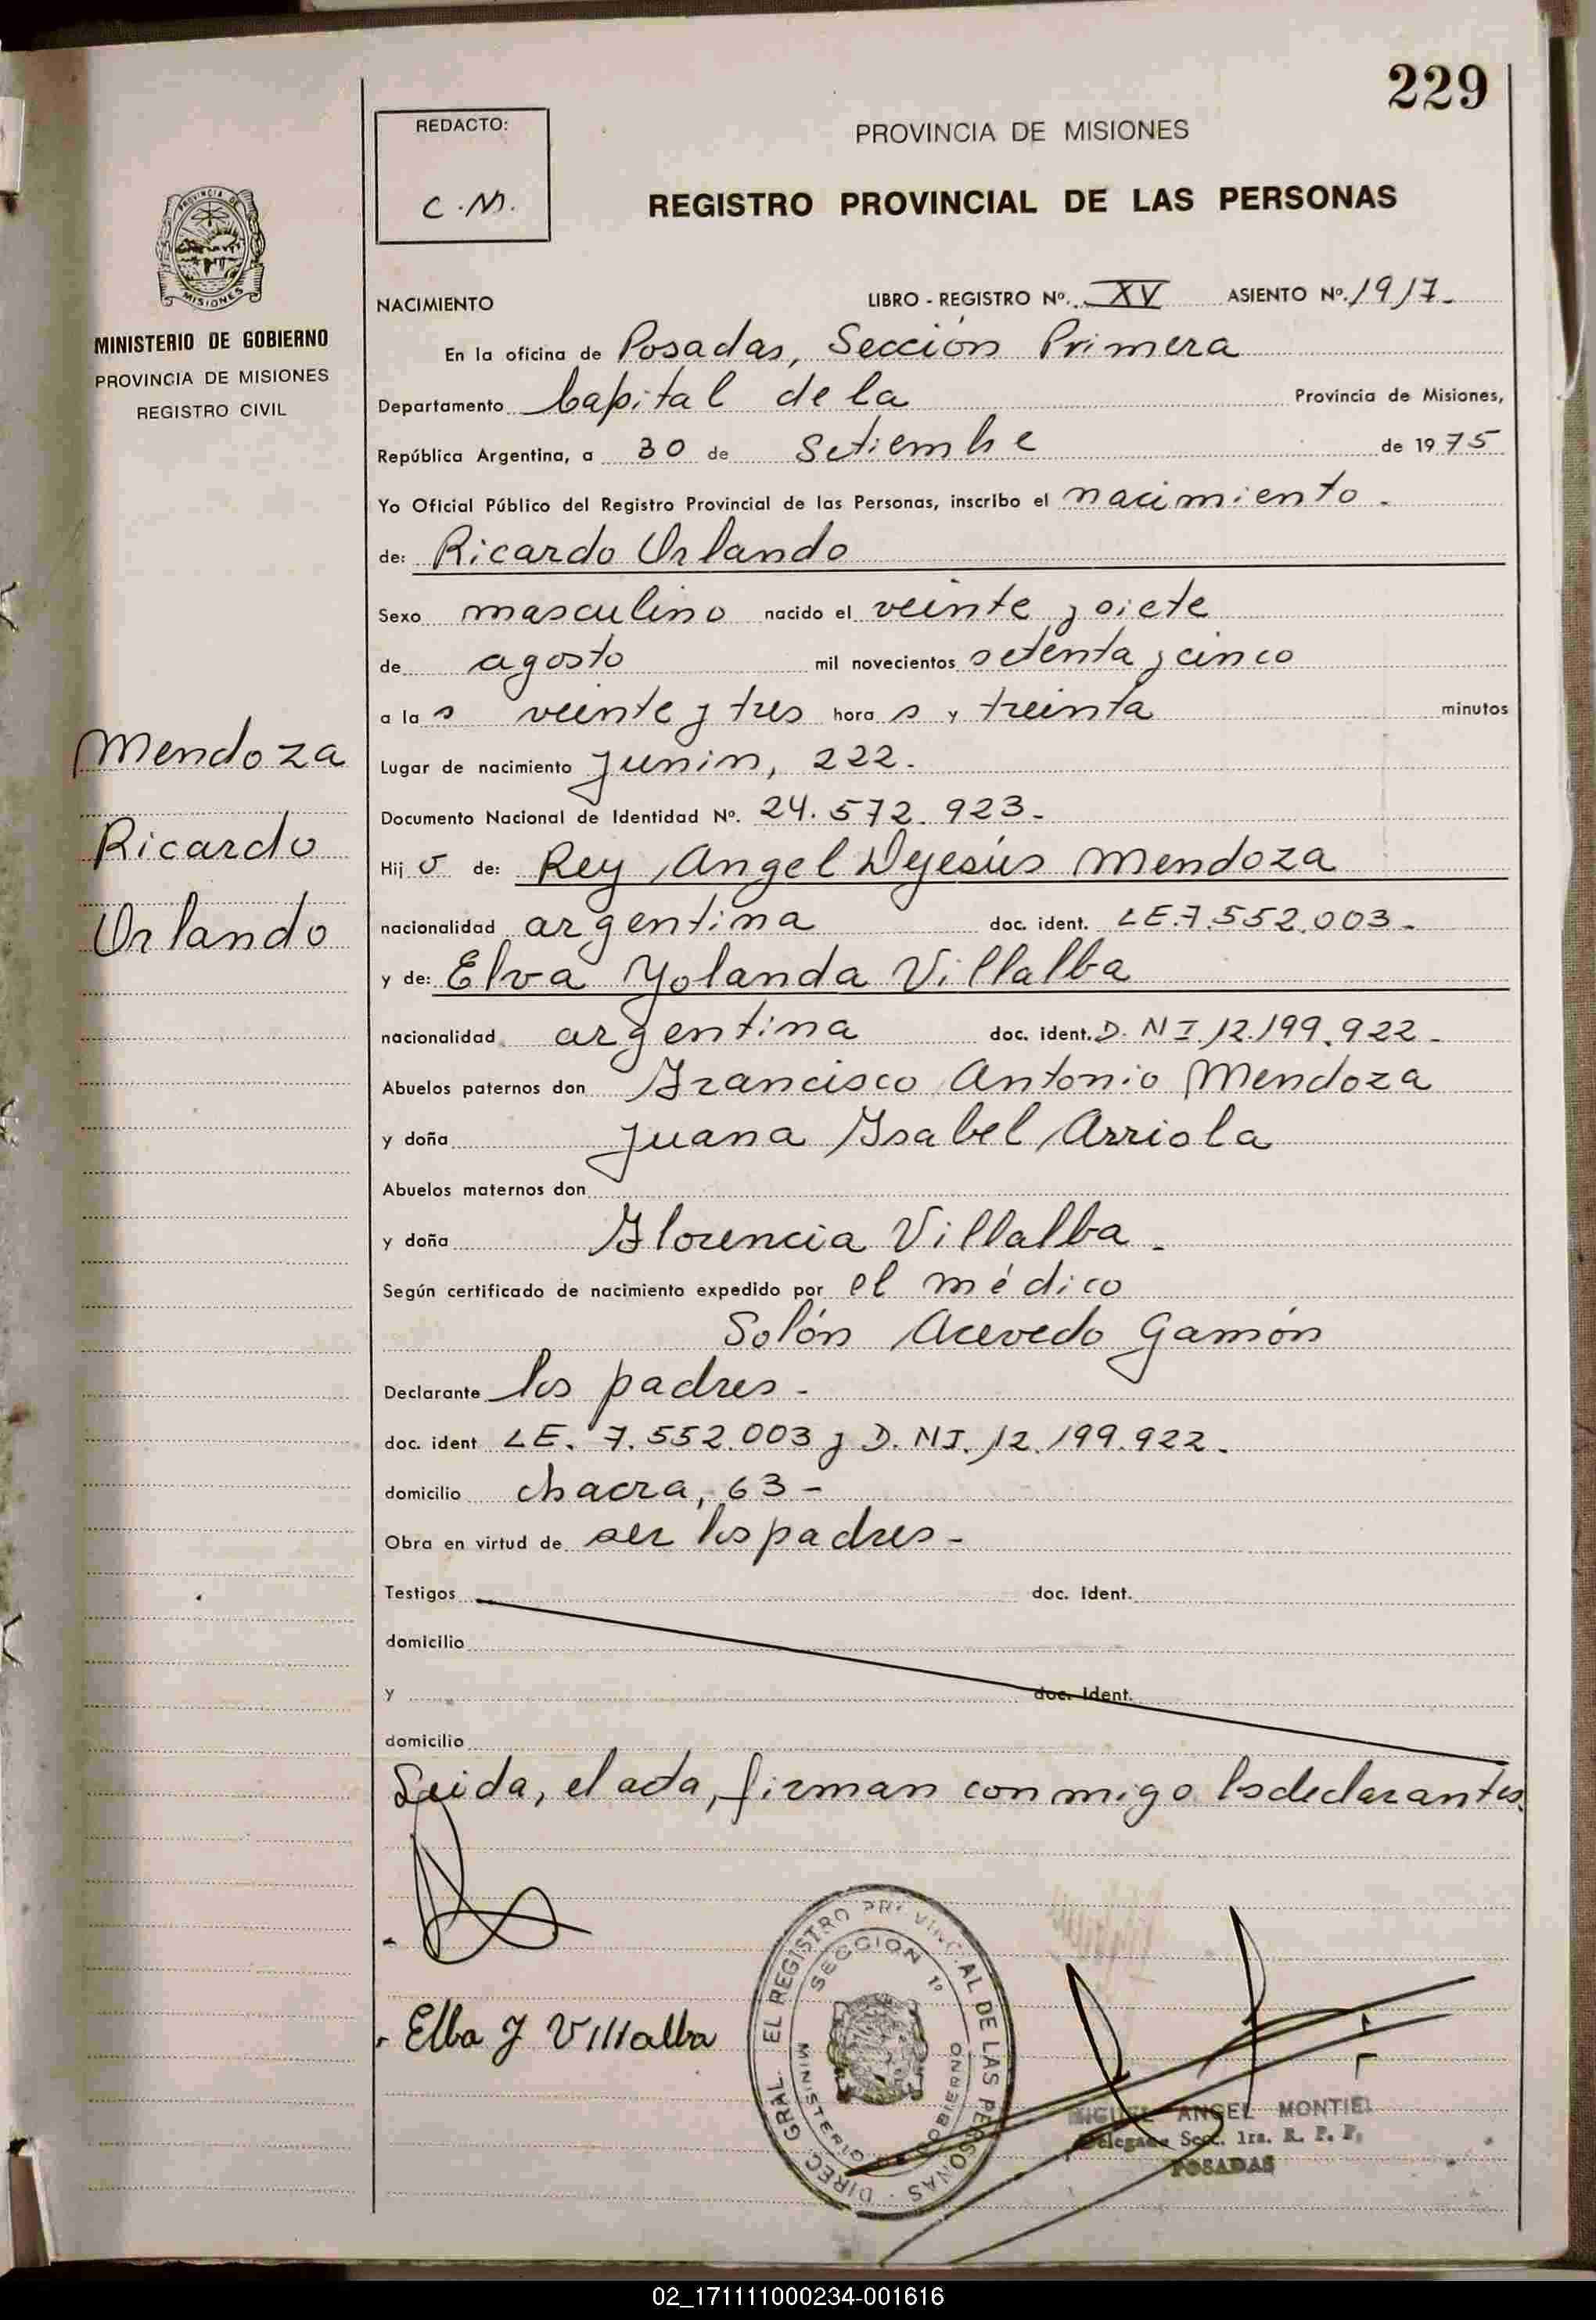 229
REDACTO:
C.M.
PROVINCIA DE MISIONES
REGISTRO PROVINCIAL DE LAS PERSONAS
PROVINCIA DE
MISIONES
MINISTERIO DE GOBIERNO
PROVINCIA DE MISIONES
REGISTRO CIVIL
NACIMIENTO LIBRO - REGISTRO Nº. XV ASIENTO Nº. 1917-
En la oficina de Posadas, Sección Primera
Departamento Capital de la Provincia de Misiones,
República Argentina, a 30 de Setiembre de 1975
Yo Oficial Público del Registro Provincial de las Personas, inscribo el nacimiento -
de: Ricardo Orlando
Sexo masculino nacido el veinte y siete
de agosto mil novecientos setenta y cinco
a la s veinte y tres hora s y treinta minutos
Mendoza
Ricardo
Orlando
Lugar de nacimiento Junin, 222.
Documento Nacional de Identidad Nº. 24.572.923-
Hij o de: Rey Angel Dejesús Mendoza
nacionalidad argentina doc. ident. LE.7.552.003-
y de: Elva Yolanda Villalba
nacionalidad argentina doc. ident. D.NI.12.199.922-
Abuelos paternos don Francisco Antonio Mendoza
y doña Juana Isabel Arriola
Abuelos maternos don
y doña Florencia Villalba -
Según certificado de nacimiento expedido por el médico
Solón Acevedo Gamón
Declarante los padres -
doc. ident LE. 7.552.003 y D.NI. 12.199.922.
domicilio chacra, 63 -
Obra en virtud de ser los padres -
Testigos doc. Ident.
domicilio
y doc. Ident.
domicilio
Leida, el acta, firman conmigo los declarantes.
Elba Y Villalba
DIREC. GRAL. EL REGISTRO PROVINCIAL DE LAS PERSONAS
SECCION 1º
MINISTERIO DE GOBIERNO
MIGUEL ANGEL MONTIEL
Delegado Secc. 1ra. R. P. P.
POSADAS
02_171111000234-001616